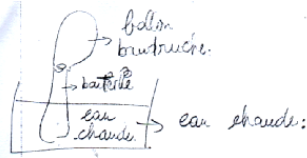 ballon
baudruche.
bouteille
eau
chaude
eau chaude: